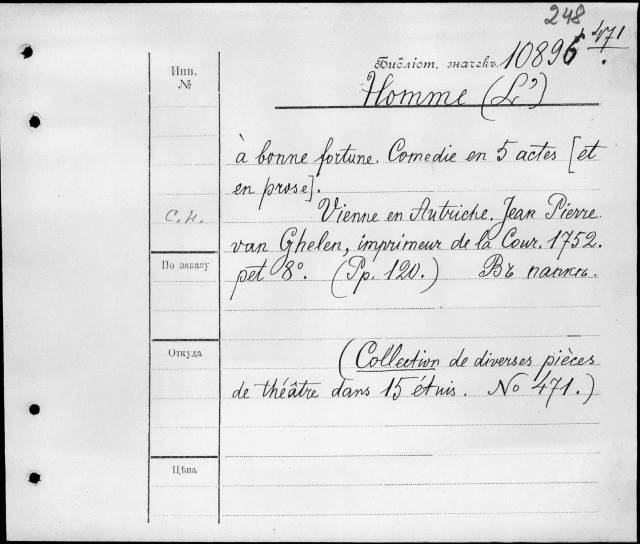 248
Инв.
№
Библіот. значекъ. 10896 471
Homme (L')
à bonne fortune. Comedie en 5 actes [et
en prose].
С.н. Vienne en Autriche. Jean Pierre
van Ghelen, imprimeur de la Cour. 1752.
По заказу
pet 8°. (Pp. 120.) Въ папкѣ.
Откуда
(Collection de diverses pièces
de théâtre dans 15 étuis. No 471.)
Цѣна